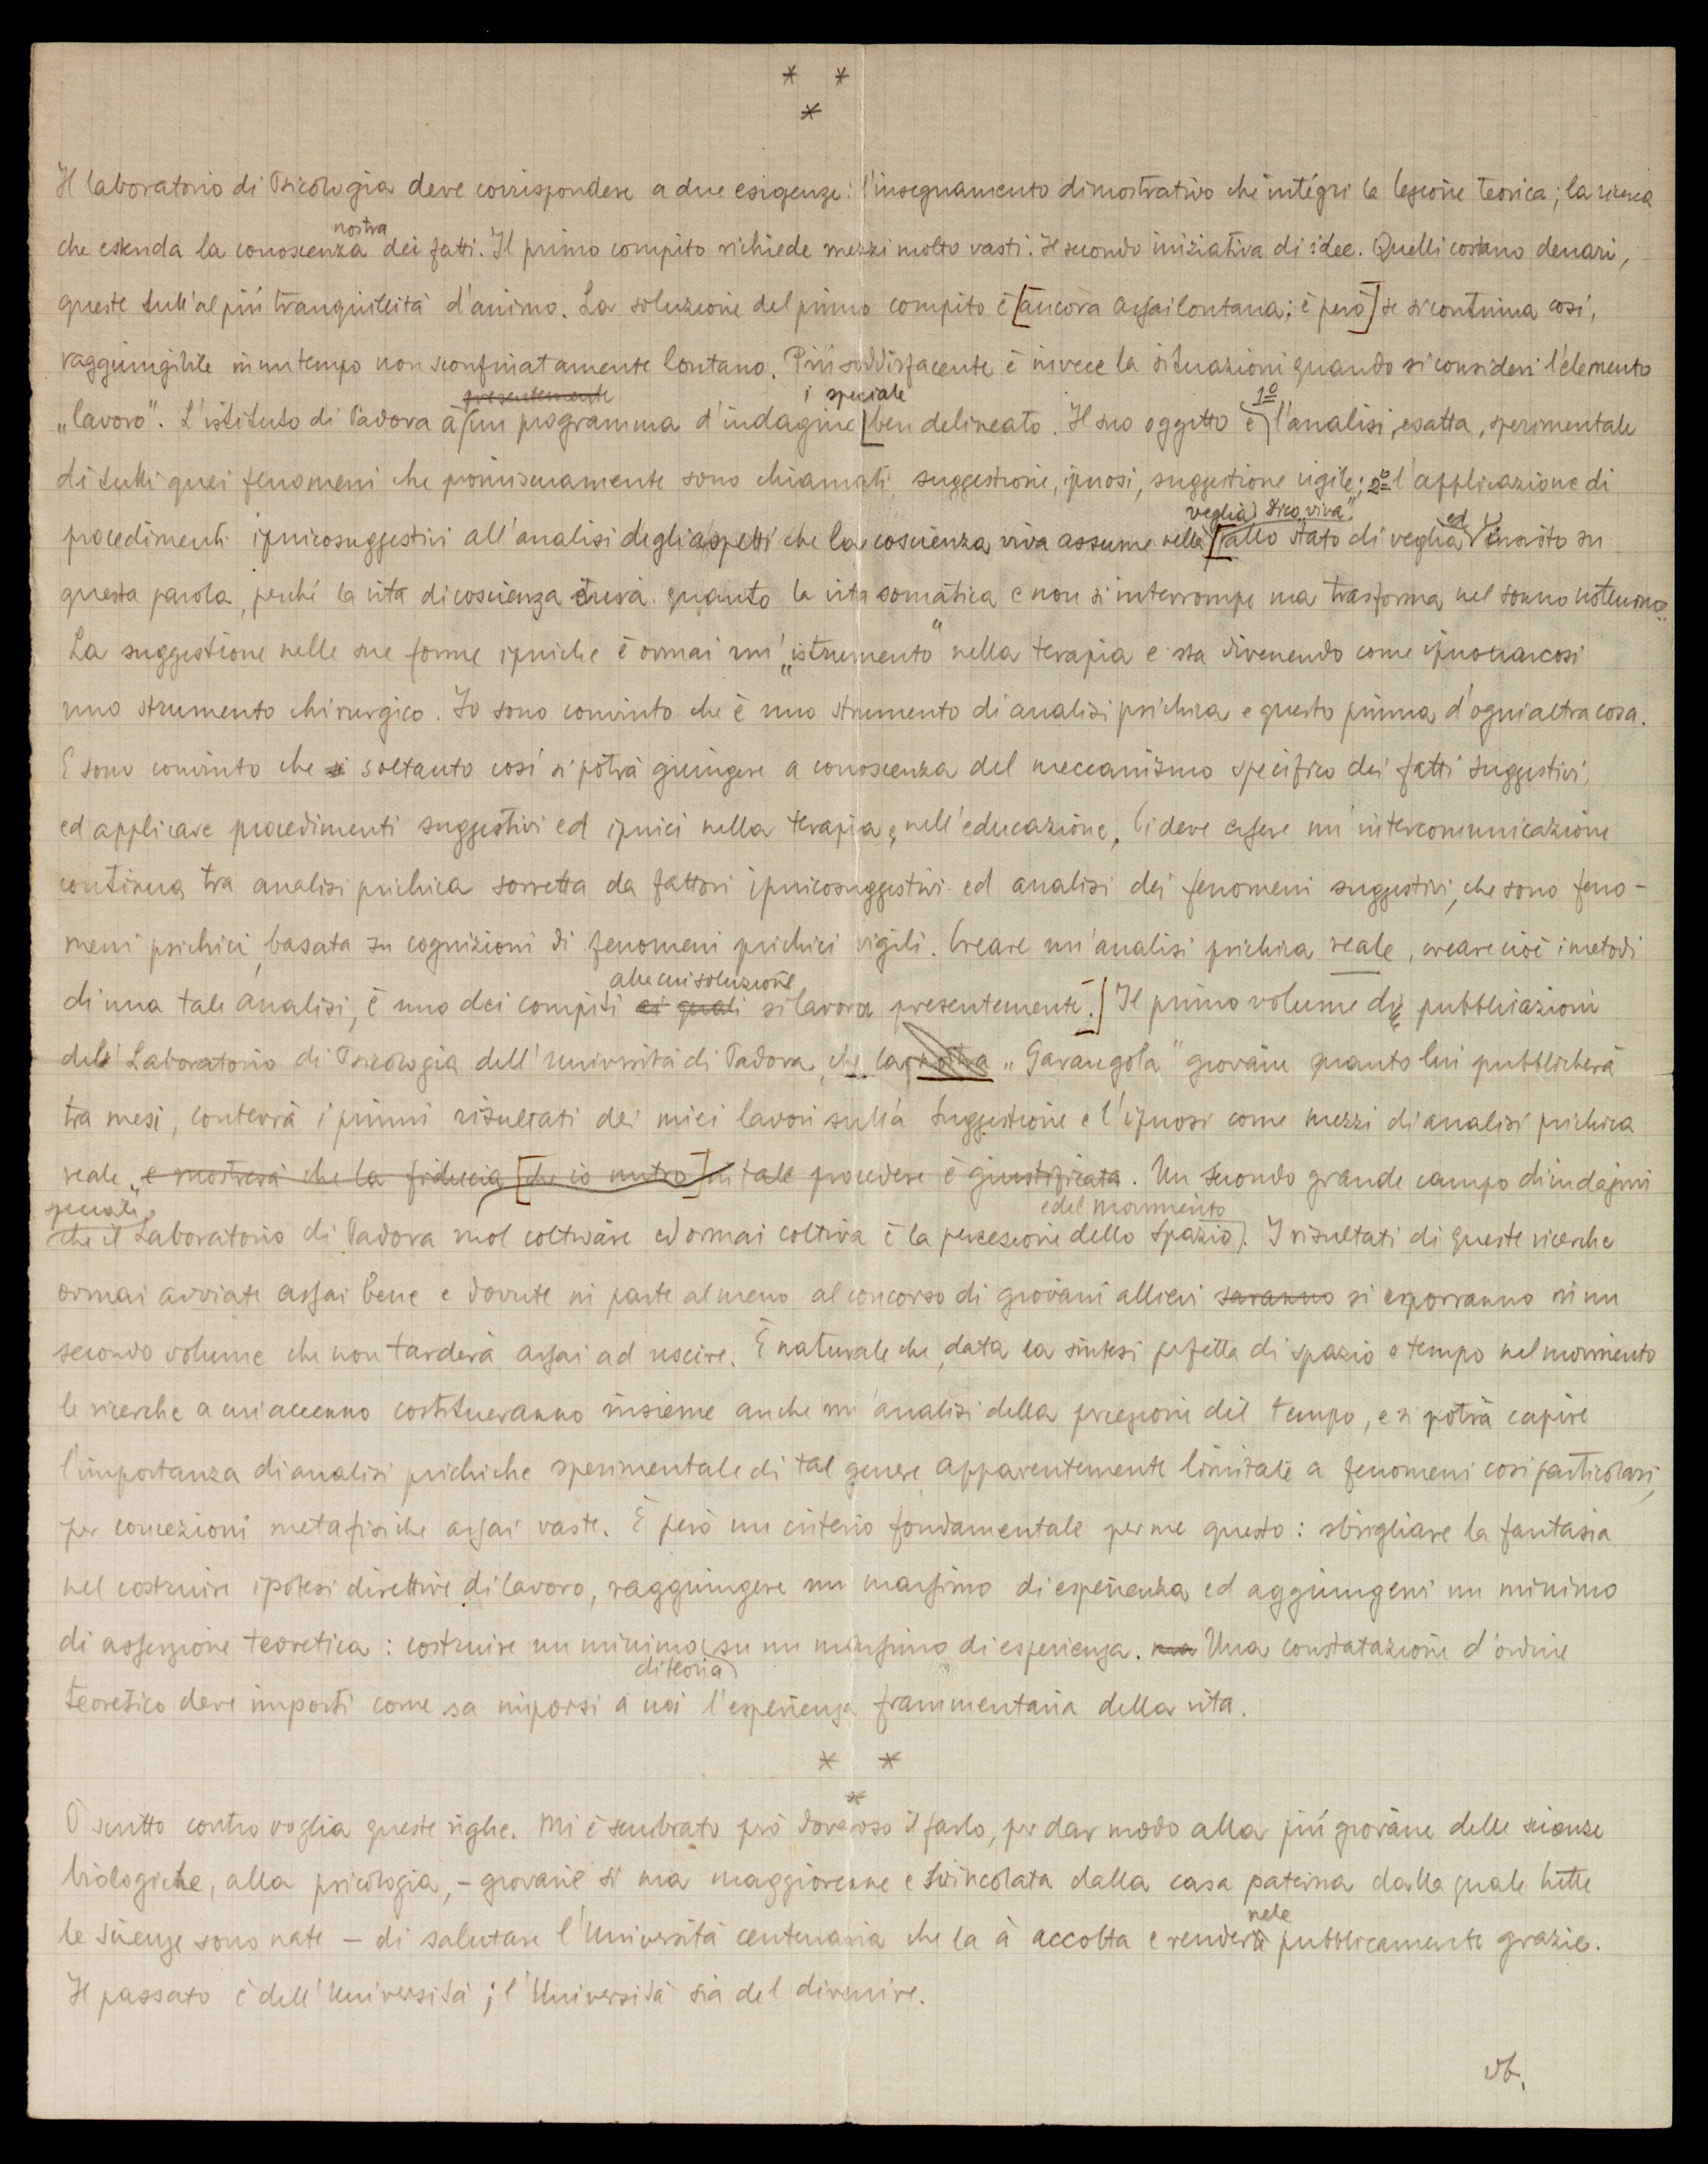 * *
*
Il laboratorio di Psicologia deve corrispondere a due esigenze: l'insegnamento dimostrativo che intégri la lezione teorica; la ricerca
nostra
che estenda la conoscenza dei fatti. Il primo compito richiede mezzi molto vasti. Il secondo iniziativa di idee. Quelli costano denari,
queste tutt'al più tranquillità d'animo. La soluzione del primo compito è [ancora assai lontana; è però] se si continua così,
raggiungibile in un tempo non sconfinatamente lontano. Più soddisfacente è invece la situazioni quando si consideri l'elemento
presentemente i speciale 1º
„lavoro". L'istituto di Padova à un programma d'indagine [ben delineato. Il suo oggetto è l'analisi, esatta, sperimentale
di tutti quei fenomeni che promiscuamente sono chiamati, suggestione, ipnosi, suggestione vigile; 2º l'applicazione di
veglia) Dico „viva" ed
procedimenti ipnicosuggestivi all'analisi degli aspetti che la coscienza viva assume nella [allo stato di veglia insisto su
questa parola, perché la vita di coscienza dura quanto la vita somatica e non si interrompe ma trasforma nel sonno notturno
La suggestione nelle sue forme ipniche è ormai un' „istrumento" nella terapia e sta divenendo come ipnonarcosi
uno strumento chirurgico. Io sono convinto che è uno strumento di analisi psichica e questo prima d'ogni altra cosa.
E sono convinto che si soltanto così si potrà giungere a conoscenza del meccanismo specifico dei fatti suggestivi,
ed applicare procedimenti suggestivi ed ipnici nella terapia e nell'educazione. Ci deve essere un'intercomunicazione
continua tra analisi psichica sorretta da fattori ipnicosuggestivi ed analisi dei fenomeni suggestivi, che sono feno-
meni psichici, basata su cognizioni di fenomeni psichici vigili. Creare un'analisi psichica reale, creare cioè i metodi
alla cui soluzione
di una tale analisi, è uno dei compiti ai quali si lavora presentemente.] Il primo volume di pubblicazioni
del Laboratorio di Psicologia dell'Università di Padova, che la nostra „Garangola" giovane quanto lui pubblicherà
tra mesi, conterrà i primi risultati dei miei lavori sulla suggestione e l'ipnosi come mezzi di analisi psichica
reale, e mostrerà che la fiducia [che io nutro] in tale procedere è giustificata. Un secondo grande campo di indagini
speciali, e del movimento
che il Laboratorio di Padova vuol coltivare ed ormai coltiva è la percezione dello spazio. I risultati di queste ricerche
ormai avviate assai bene e dovute in parte almeno al concorso di giovani allievi saranno si esporranno in un
secondo volume che non tarderà assai ad uscire. È naturale che, data la sintesi perfetta di spazio e tempo nel movimento
le ricerche a cui accenno costitueranno insieme anche un'analisi della percezione del tempo, e si potrà capire
l'importanza di analisi psichiche sperimentale di tal genere, apparentemente limitate a fenomeni così particolari,
per concezioni metafisiche assai vaste. È però un criterio fondamentale per me questo: sbrigliare la fantasia
nel costruire ipotesi direttive di lavoro, raggiungere un massimo di esperienza ed aggiungervi un minimo
di asserzione teoretica: costruire un minimo su un massimo di esperienza. ma Una constatazione d'ordine
di teoria
teoretico deve imporsi come sa imporsi a noi l'esperienza frammentaria della vita.
* *
*
Ò scritto contro voglia queste righe. Mi è sembrato però doveroso il farlo, per dar modo alla più giovane delle scienze
biologiche, alla psicologia, – giovane sì ma maggiorenne e svincolata dalla casa paterna dalla quale tutte
nele
le scienze sono nate – di salutare l'Università centenaria che la à accolta e render pubblicamente grazie.
Il passato è dell'Università; l'Università sia del divenire.
vb.